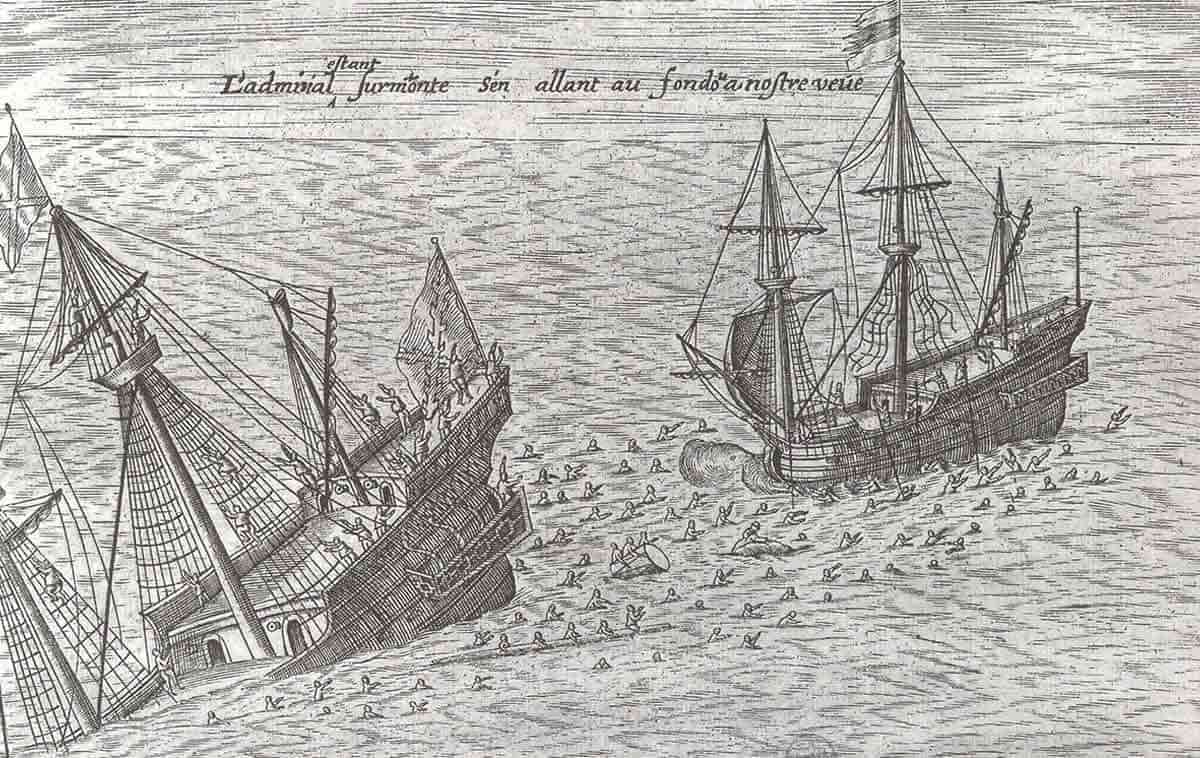 estant
L'admiral ſurmonte S'en allant au fond a noſtre veüe